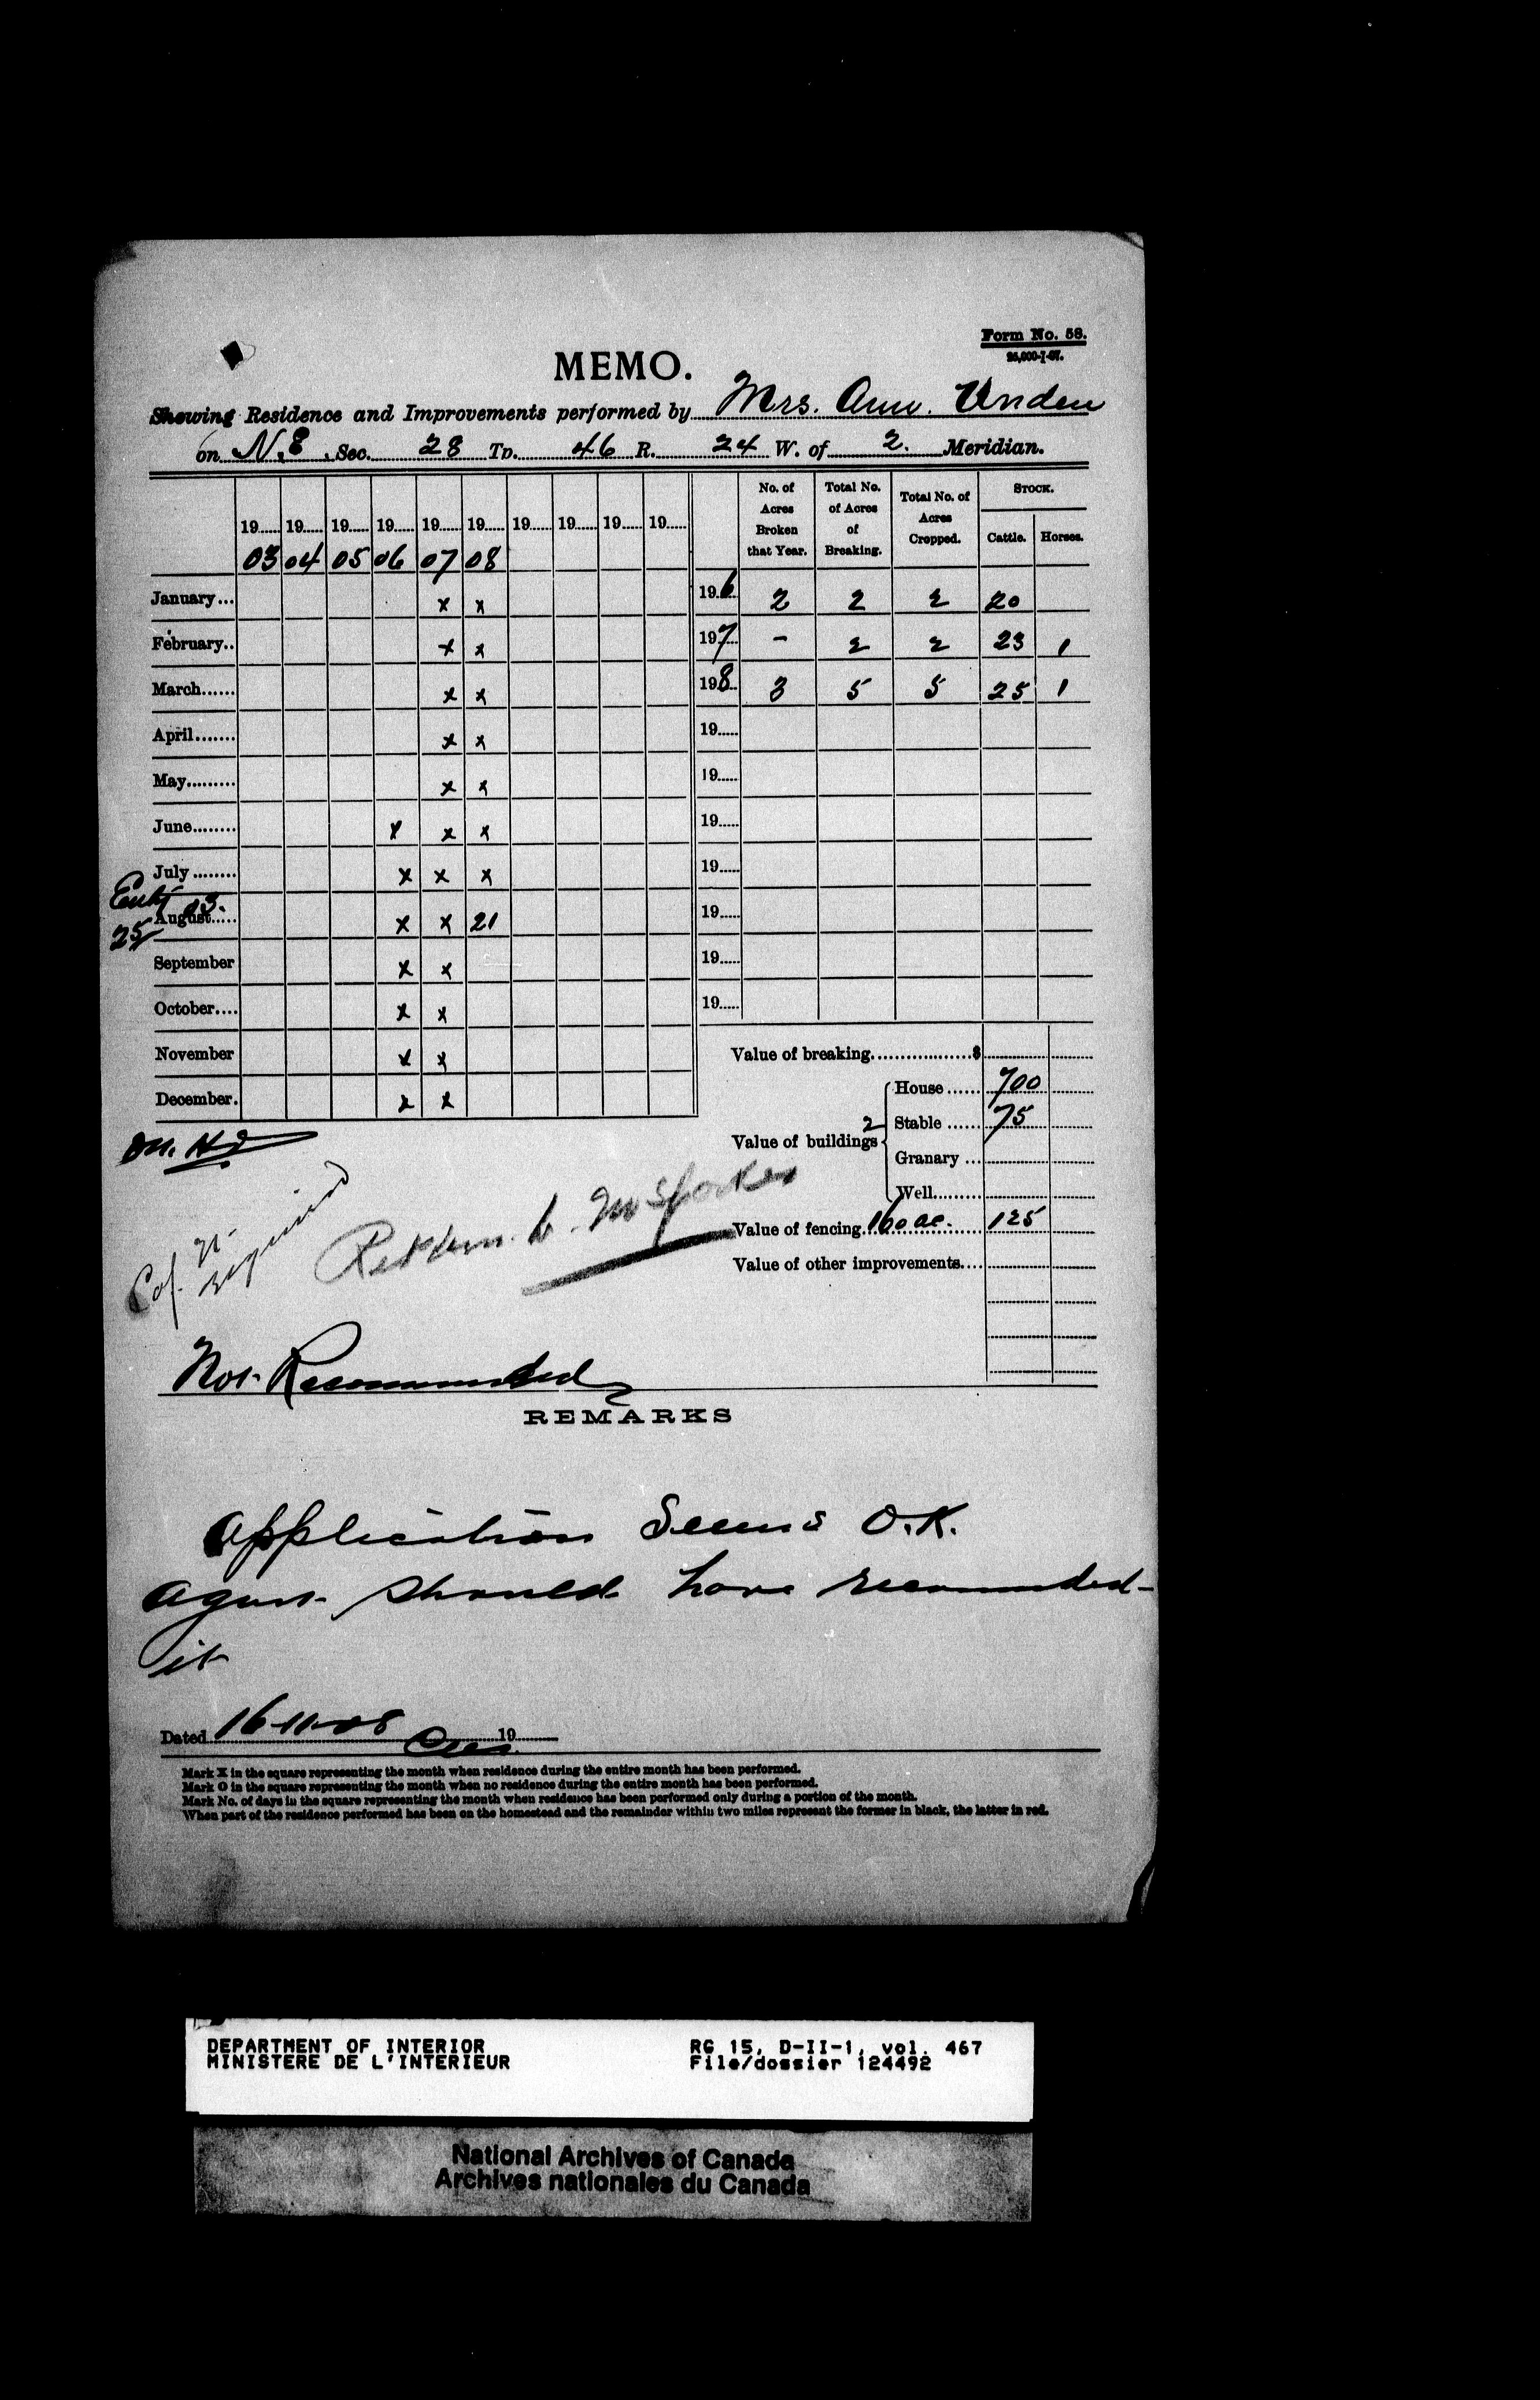 Form No. 58.
25,000-I-07.
MEMO.
Shewing Residence and Improvements performed by Mrs. Ann. Unden
on N.E. Sec. 28 Tp. 46 R. 24 W. of 2. Meridian.
19 19 19 19 19 19 19 19 19 19 No. of Acres Broken that Year. Total No. of Acres of Breaking. Total No. of Acres Cropped. STOCK. Cattle. Horses.
03 04 05 06 07 08
January... x x 19 6 2 2 2 20
February.. x x 19 7 - 2 2 23 1
March...... x x 19 8 3 5 5 25 1
April....... x x 19.....
May......... x x 19.....
June........ x x x 19.....
July ........ x x x 19.....
Entry 03.
25 August..... x x 21 19.....
September x x 19.....
October.... x x 19.....
November x x
December. x x
Value of breaking..................$
Value of buildings
House ...... 700
2 Stable ...... 75
Granary ...
Well.........
Value of fencing. 160 ac. 125
Value of other improvements....
required
Not Recommended
REMARKS
Application Seems O.K.
Agent should have recommended
it
Dated 16-11-08 19
Mark X in the square representing the month when residence during the entire month has been performed.
Mark O in the square representing the month when no residence during the entire month has been performed.
Mark No. of days in the square representing the month when residence has been performed only during a portion of the month.
When part of the residence performed has been on the homestead and the remainder within two miles represent the former in black, the latter in red.
DEPARTMENT OF INTERIOR RG 15, D-II-1, vol. 467
MINISTERE DE L'INTERIEUR File/dossier 124492
National Archives of Canada
Archives nationales du Canada